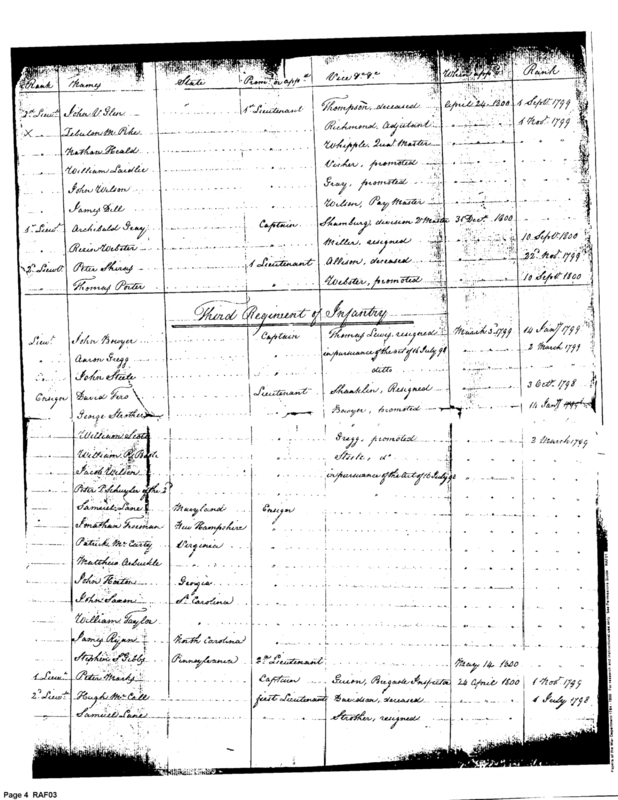 Rank Names State Prom. or app.d Vice &c &c When app.d Rank
2d Lieut. John V Glen 1st Lieutenant Thompson, deceased April 24. 1800 1 Sept. 1799
X Zebulon M. Pike Richmond, Adjutant " 1 Nov. 1799
Nathan Heald Whipple Quar. Master
William Vischer, promoted
John Wilson Gray, promoted
James Dill Wilson, Pay Master
1st Lieut. Archibald Gray Captain Shamburg, division Q Master 1800
Rezin Webster Miller, resigned 10 Sept. 1800
2d Lieut. Peter Shiras 1 Lieutenant Allison, deceased 22d Nov. 1799
Thomas Porter " Webster, promoted 10 Sept. 1800
Third Regiment of Infantry
Lieut. John Bowyer Captain Thomas Lewis, resigned March 3d 1799 14 Jany. 1799
" Aaron Gregg in pursuance of the act of 16 July 98 2 March 1799
John Steele ditto
Ensign David Fero Lieutenant Shanklin, Resigned 3 Oct. 1798
George Strother Bowyer, promoted 14 Jany.
William Scott Gregg, promoted 2 March 1799
William Steele, do
Jacob Wilson in pursuance of the act of 16 July 98
Peter P. Schuyler of the 3d
Samuel Lane Maryland Ensign
Jonathan Freeman New Hampshire
Patrick McCarty Virginia
Matthew Arbuckle
John Heaton Georgia
John Saxon So. Carolina
William Taylor
James Ryan North Carolina
Stephen G Gibbs Pennsylvania 2d Lieutenant May 14. 1800
1 Lieut. Peter Marks Captain Guion, Brigade Inspector 24 April 1800 1 Nov. 1799
2d Lieut. Hugh McCall first Lieutenant Davidson, deceased 1 July 1798
Samuel Lane Strother, resigned
Page 4 RAF03